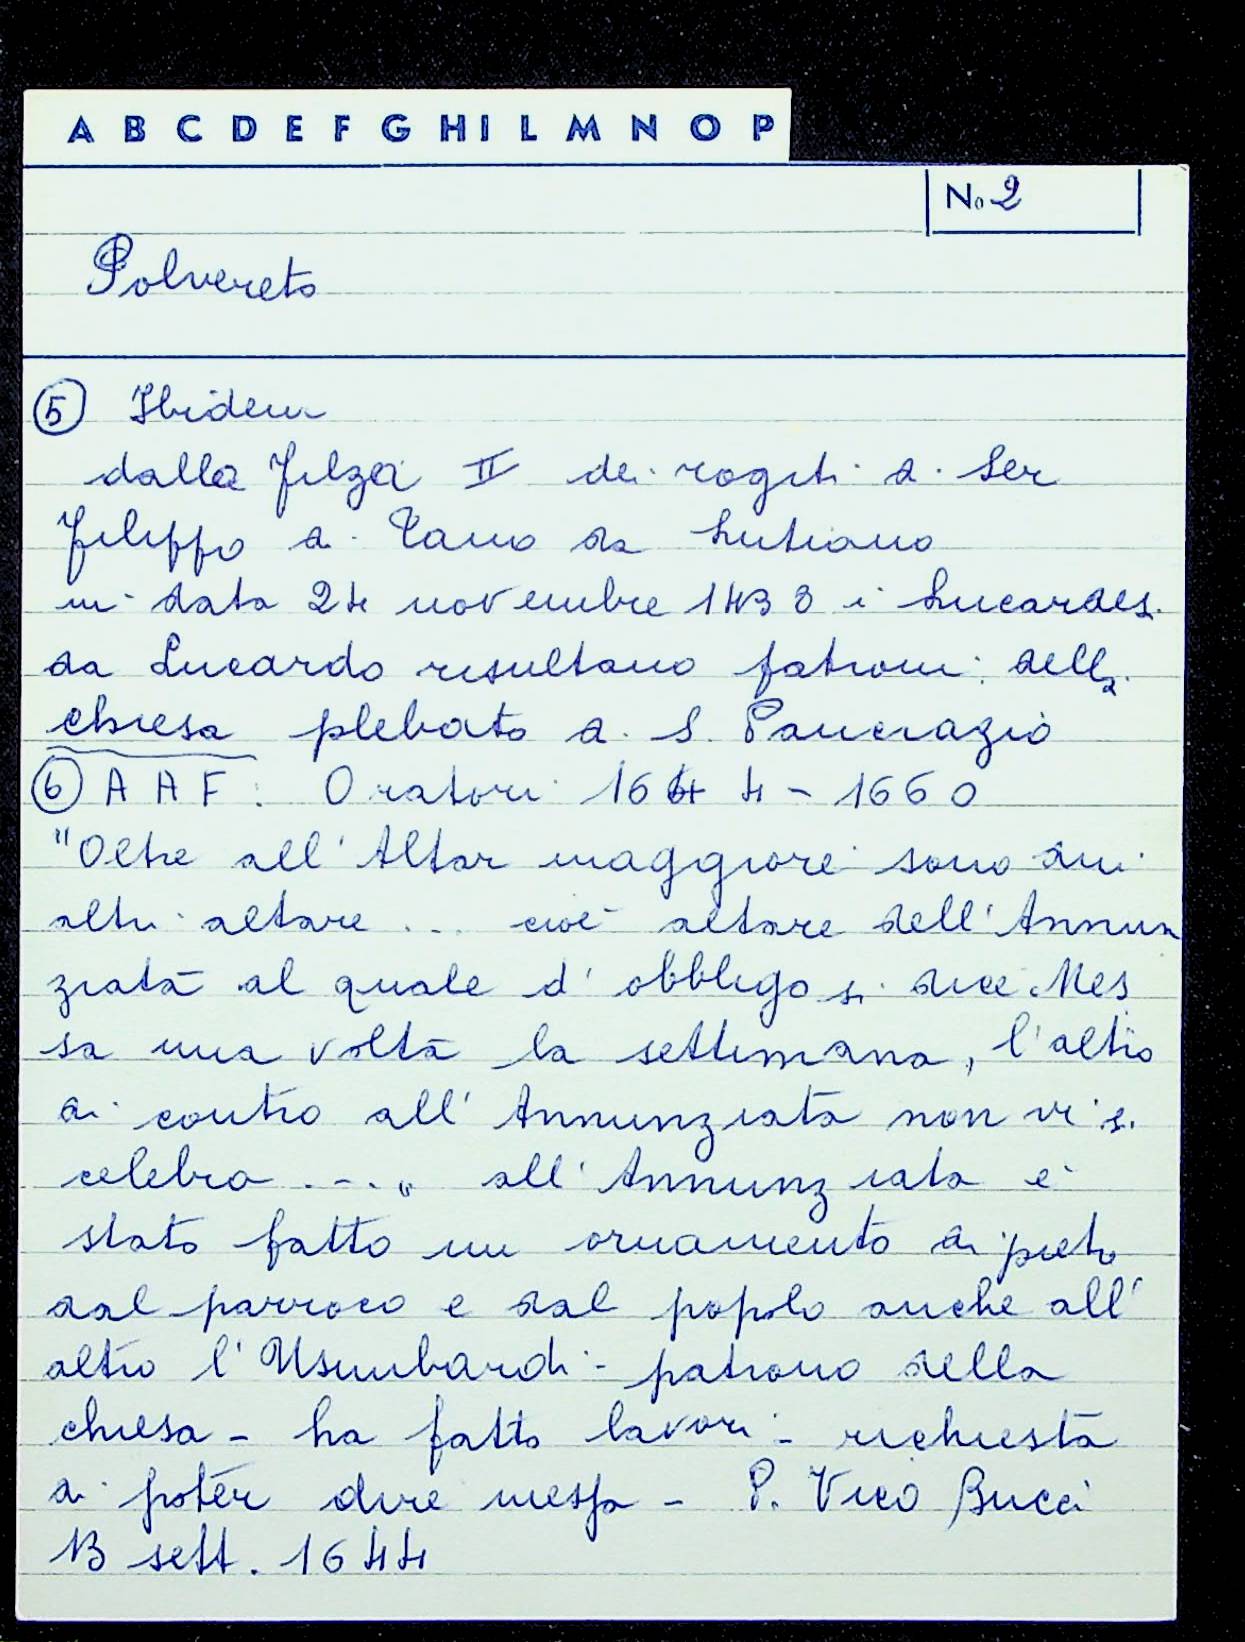 A B C D E F G H I L M N O P
No 2
Polvereto
5 Ibidem
dalla filza II dei rogiti di Ser
Filippo di Tano da Lutiano
in data 24 novembre 1438 i Lucardes.
da Lucardo risultano patroni della
chiesa plebato di S. Pancrazio
6 A A F: Oratori 1644-1660
"Oltre all'Altar maggiore sono dui
altri altare ... cioè altare dell'Annun
ziata al quale d'obbligo si dice Mes
sa una volta la settimana, l'altro
di contro all'Annunziata non vi si
celebra ..." all'Annunziata è
stato fatto un ornamento di pietra
dal parroco e dal popolo anche all'
altro l'Usimbardi - patrono della
chiesa - ha fatto lavori - richiesta
di poter dire messa - P. Vico Bucci
13 sett. 1644